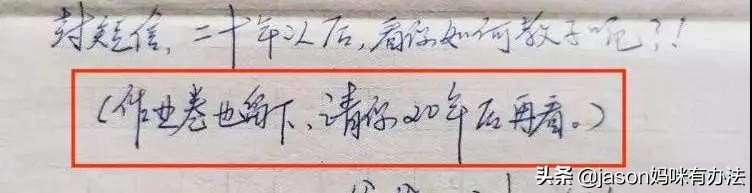 封短信,二十年以后,看你如何教子呢?!!
(作业卷也留下、请你20年后再看。)
头条 @jason妈咪有办法